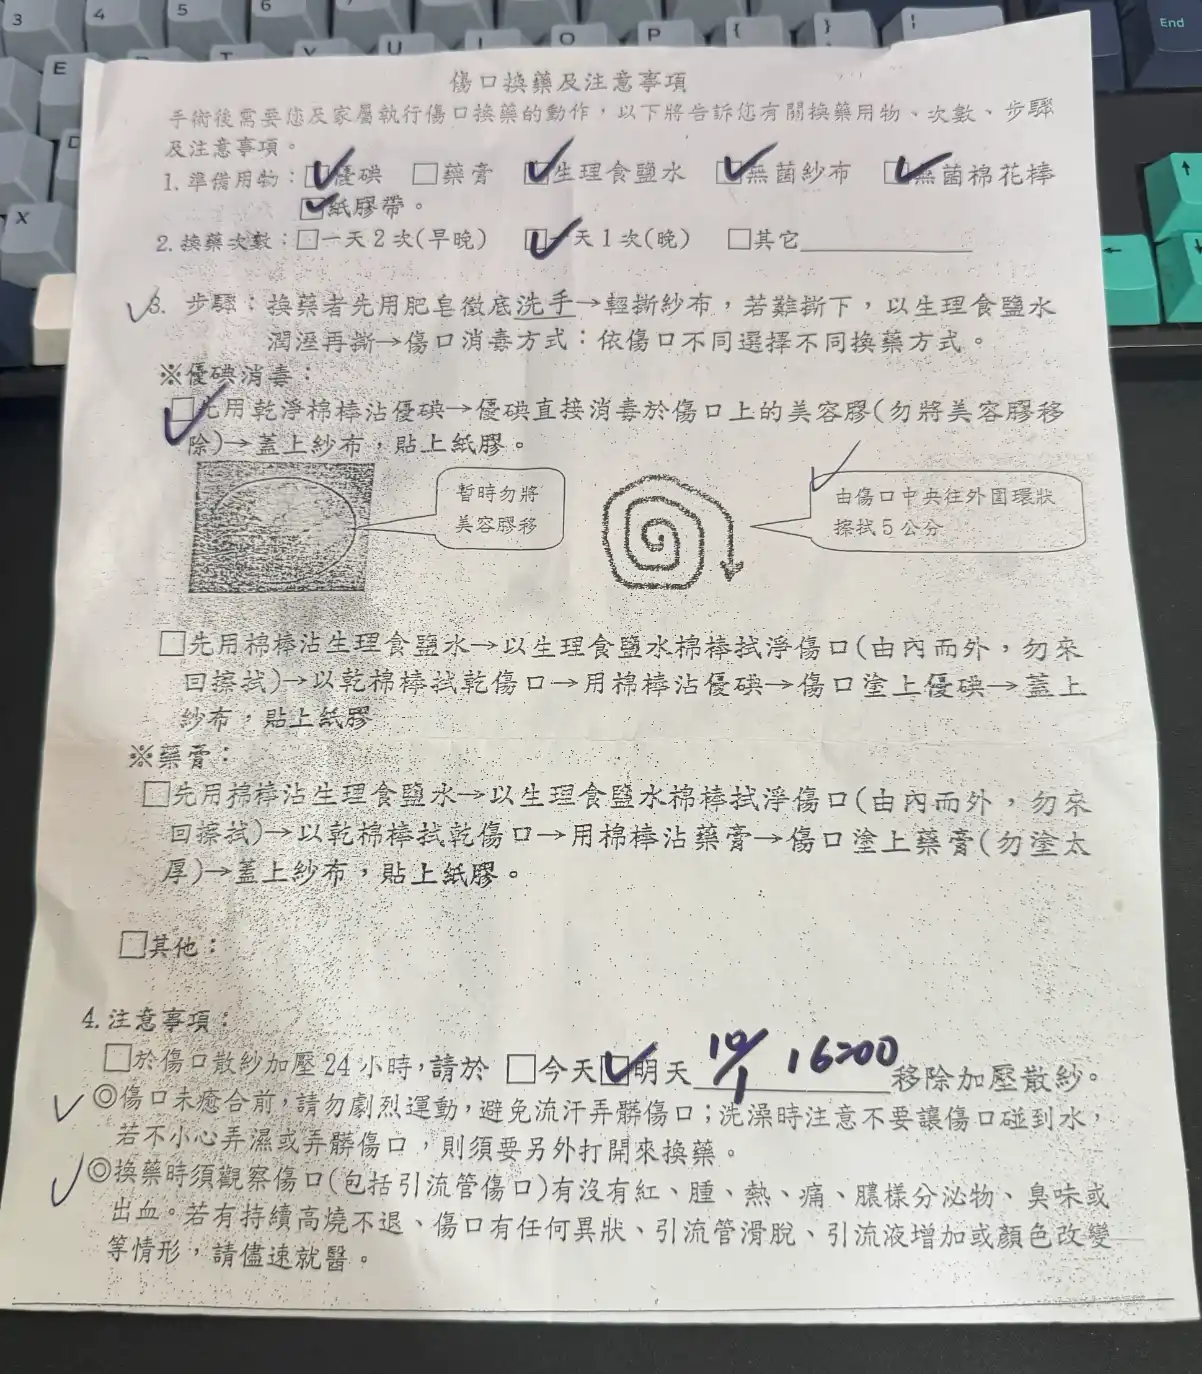 3 4 5 6
E T Y U I O P { } |
X
End
傷口換藥及注意事項
手術後需要您及家屬執行傷口換藥的動作，以下將告訴您有關換藥用物、次數、步驟
及注意事項。
1. 準備用物：☑優碘 □藥膏 ☑生理食鹽水 ☑無菌紗布 ☑無菌棉花棒
☑紙膠帶。
2. 換藥次數：□一天2次(早晚) ☑一天1次(晚) □其它
✓3. 步驟：換藥者先用肥皂徹底洗手→輕撕紗布，若難撕下，以生理食鹽水
潤溼再撕→傷口消毒方式：依傷口不同選擇不同換藥方式。
※優碘消毒：
☑先用乾淨棉棒沾優碘→優碘直接消毒於傷口上的美容膠(勿將美容膠移
除)→蓋上紗布，貼上紙膠。
暫時勿將
美容膠移
✓由傷口中央往外圍環狀
擦拭5公分
□先用棉棒沾生理食鹽水→以生理食鹽水棉棒拭淨傷口(由內而外，勿來
回擦拭)→以乾棉棒拭乾傷口→用棉棒沾優碘→傷口塗上優碘→蓋上
紗布，貼上紙膠
※藥膏：
□先用棉棒沾生理食鹽水→以生理食鹽水棉棒拭淨傷口(由內而外，勿來
回擦拭)→以乾棉棒拭乾傷口→用棉棒沾藥膏→傷口塗上藥膏(勿塗太
厚)→蓋上紗布，貼上紙膠。
□其他：
4. 注意事項：
□於傷口散紗加壓24小時，請於 □今天☑明天 10/1 16:00 移除加壓散紗。
✓◎傷口未癒合前，請勿劇烈運動，避免流汗弄髒傷口；洗澡時注意不要讓傷口碰到水，
若不小心弄濕或弄髒傷口，則須要另外打開來換藥。
✓◎換藥時須觀察傷口(包括引流管傷口)有沒有紅、腫、熱、痛、膿樣分泌物、臭味或
出血。若有持續高燒不退、傷口有任何異狀、引流管滑脫、引流液增加或顏色改變
等情形，請儘速就醫。